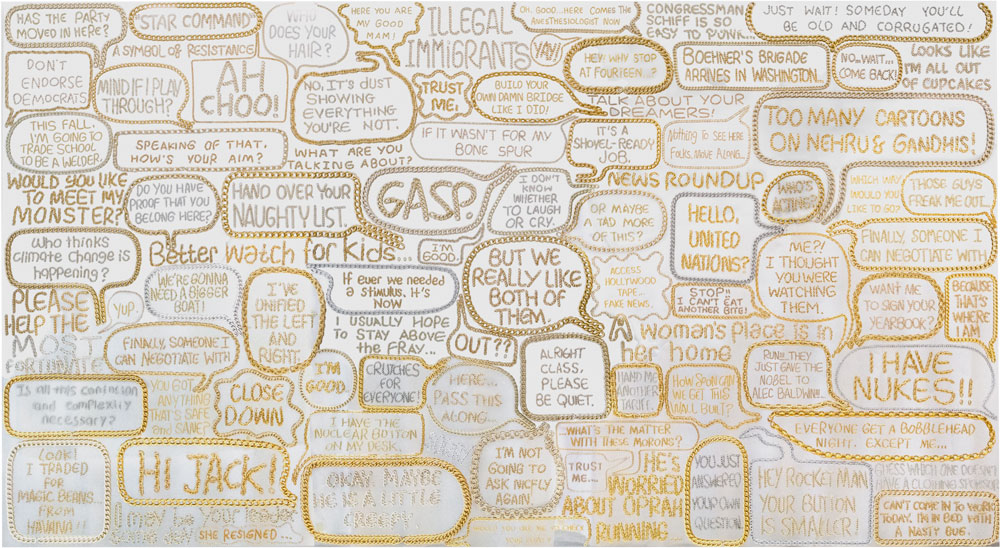 HAS THE PARTY
MOVED IN HERE?
"STAR COMMAND"
A SYMBOL OF RESISTANCE
WHO
DOES YOUR
HAIR?
HERE YOU ARE
MY GOOD
MAM!
ILLEGAL
IMMIGRANTS
YAY!
OH, GOOD...HERE COMES THE
ANESTHESIOLOGIST NOW
CONGRESSMAN
SCHIFF IS SO
EASY TO PUNK...
JUST WAIT! SOMEDAY YOU'LL
BE OLD AND CORRUGATED!
DON'T
ENDORSE
DEMOCRATS
MIND IF I PLAY
THROUGH?
AH
CHOO!
NO, IT'S JUST
SHOWING
EVERYTHING
YOU'RE NOT.
TRUST
ME.
BUILD YOUR
OWN DAMN BRIDGE
LIKE I DID!
HEY! WHY STOP
AT FOURTEEN...?
BOEHNER'S BRIGADE
ARRIVES IN WASHINGTON...
NO...WAIT...
COME BACK!
LOOKS LIKE
I'M ALL OUT
OF CUPCAKES
THIS FALL,
I'M GOING TO
TRADE SCHOOL
TO BE A WELDER.
SPEAKING OF THAT,
HOW'S YOUR AIM?
WHAT ARE YOU
TALKING ABOUT?
IF IT WASN'T FOR MY
BONE SPUR
TALK ABOUT YOUR
DREAMERS!
IT'S A
SHOVEL-READY
JOB.
Nothing TO SEE HERE
FOLKS, MOVE ALONG...
TOO MANY CARTOONS
ON NEHRU & GANDHIS!
WOULD YOU LIKE
TO MEET MY
MONSTER?
DO YOU HAVE
PROOF THAT YOU
BELONG HERE?
HAND OVER YOUR
NAUGHTY LIST.
GASP.
I DON'T
KNOW
WHETHER
TO LAUGH
OR CRY.
NEWS ROUNDUP
OR MAYBE
A TAD MORE
OF THIS?
HELLO,
UNITED
NATIONS?
WHO'S
ACTING?
WHICH WAY
WOULD YOU
LIKE TO GO?
THOSE GUYS
FREAK ME OUT.
Who thinks
climate change is
happening?
Better watch for kids...
I'M
GOOD.
BUT WE
REALLY LIKE
BOTH OF
THEM.
ACCESS
HOLLYWOOD
TAPE...
FAKE NEWS.
STOP!!
I CAN'T EAT
ANOTHER BITE!
ME?!
I THOUGHT
YOU WERE
WATCHING
THEM.
FINALLY, SOMEONE I
CAN NEGOTIATE WITH
PLEASE
HELP THE
MOST
FORTUNATE
YUP.
WE'RE GONNA
NEED A BIGGER
BOAT!
I'VE
UNIFIED
THE LEFT
AND
RIGHT.
If ever we needed
a stimulus, it's
NOW
I USUALLY HOPE
TO STAY ABOVE
the FRAY...
OUT??
A woman's place is in
her home
WANT ME
TO SIGN YOUR
YEARBOOK?
BECAUSE
THAT'S
WHERE
I AM.
FINALLY, SOMEONE I
CAN NEGOTIATE WITH
Is all this confusion
and complexity
necessary?
YOU GOT
ANYTHING
THAT'S SAFE
and SANE?
CLOSE
DOWN
I'M
GOOD
CRUTCHES
FOR
EVERYONE!
HERE...
PASS THIS
ALONG...
ALRIGHT
CLASS,
PLEASE
BE QUIET.
HAND ME
ANOTHER
HOW SOON CAN
WE GET THIS
WALL BUILT?
RUN!!..THEY
JUST GAVE THE
NOBEL TO
ALEC BALDWIN!..
I HAVE
NUKES!!
I HAVE THE
NUCLEAR BUTTON
ON MY DESK
LOOK!
I TRADED
FOR
MAGIC BEANS...
FROM
HAVANA!!
HI JACK!
OKAY MAYBE
HE IS A LITTLE
CREEPY.
I'M NOT
GOING TO
ASK NICELY
AGAIN.
...WHAT'S THE MATTER
WITH THESE MORONS?
TRUST
ME...
HE'S
WORRIED
ABOUT OPRAH
RUNNING...
YOU JUST
ANSWERED
YOUR OWN
QUESTION
EVERYONE GET A BOBBLEHEAD
NIGHT. EXCEPT ME...
HEY ROCKET MAN
YOUR BUTTON
IS SMALLER!
GUESS WHICH ONE DOESN'T
HAVE A CLOTHING SPONSOR
CAN'T COME IN TO WORK
TODAY. I'M IN BED WITH
A NASTY BUG.
I may be your
SHE RESIGNED...